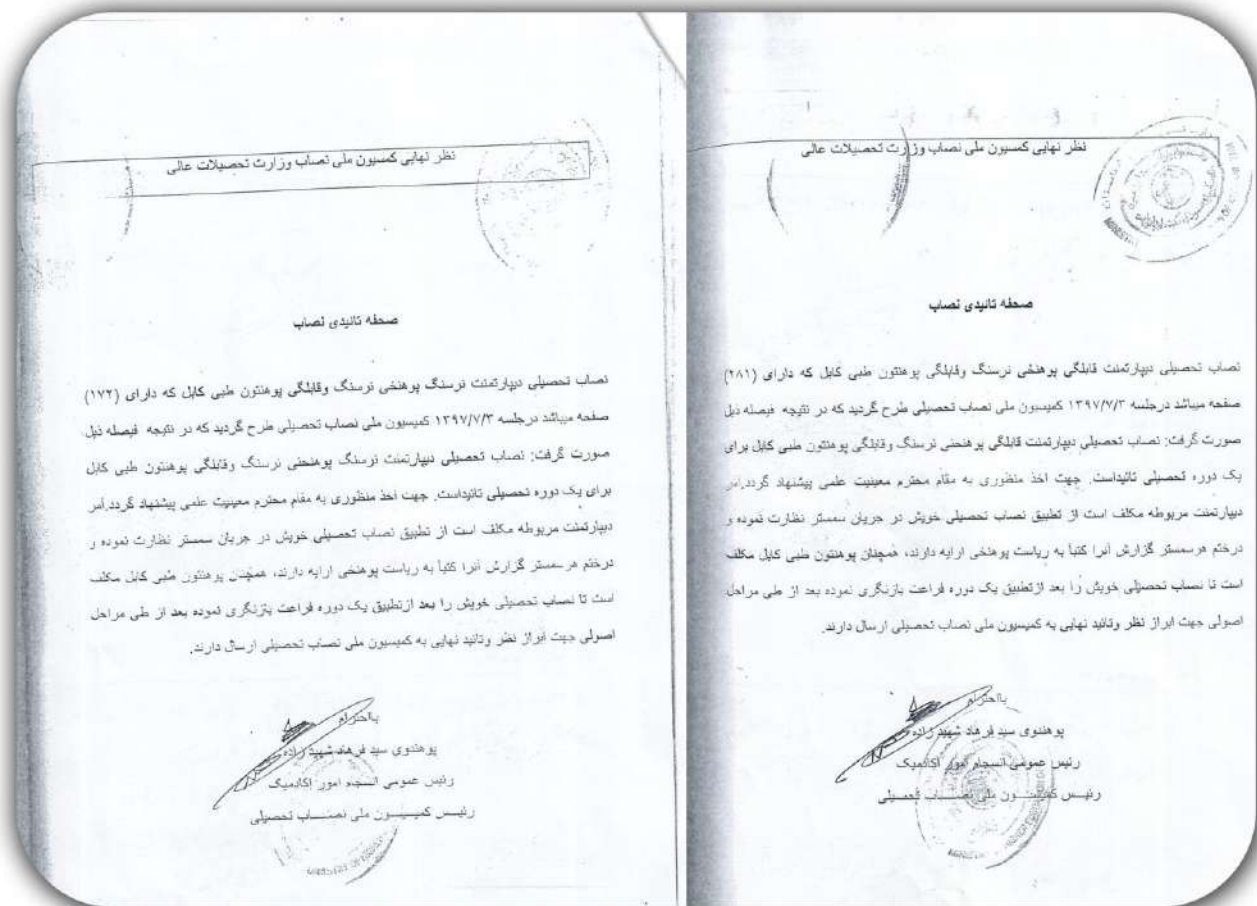 نظر نهایی کمسیون ملی نصاب وزارت تحصیلات عالی
صحفه تائیدی نصاب
نصاب تحصیلی دیپارتمنت نرسنگ پوهنخی نرسنگ وقابلگی پوهنتون طبی کابل که دارای (۱۷۲)
صفحه میباشد درجلسه ۱۳۹۷/۷/۳ کمیسیون ملی نصاب تحصیلی طرح گردید که در نتیجه فیصله ذیل
صورت گرفت: نصاب تحصیلی دیپارتمنت نرسنگ پوهنحی نرسنگ وقابلگی پوهنتون طبی کابل
برای یک دوره تحصیلی تائیداست. جهت اخذ منظوری به مقام محترم معینیت علمی پیشنهاد گردد.آمر
دیپارتمنت مربوطه مکلف است از تطبیق نصاب تحصیلی خویش در جریان سمستر نظارت نموده و
درختم هرسمستر گزارش آنرا کتباً به ریاست پوهنخی ارایه دارند، همچنان پوهنتون طبی کابل مکلف
است تا نصاب تحصیلی خویش را بعد ازتطبیق یک دوره فراغت بازنگری نموده بعد از طی مراحل
اصولی جهت ابراز نظر وتائید نهایی به کمیسیون ملی نصاب تحصیلی ارسال دارند.
بااحترام
پوهندوی سید فرهاد شهید زاده
رئیس عمومی انسجام امور اکادمیک
رئیس کمیسیون ملی نصاب تحصیلی
نظر نهایی کمسیون ملی نصاب وزارت تحصیلات عالی
صحفه تائیدی نصاب
نصاب تحصیلی دیپارتمنت قابلگی پوهنخی نرسنگ وقابلگی پوهنتون طبی کابل که دارای (۲۸۱)
صفحه میباشد درجلسه ۱۳۹۷/۷/۳ کمیسیون ملی نصاب تحصیلی طرح گردید که در نتیجه فیصله ذیل
صورت گرفت: نصاب تحصیلی دیپارتمنت قابلگی پوهنحی نرسنگ وقابلگی پوهنتون طبی کابل برای
یک دوره تحصیلی تائیداست. جهت اخذ منظوری به مقام محترم معینیت علمی پیشنهاد گردد.آمر
دیپارتمنت مربوطه مکلف است از تطبیق نصاب تحصیلی خویش در جریان سمستر نظارت نموده و
درختم هرسمستر گزارش آنرا کتباً به ریاست پوهنخی ارایه دارند، همچنان پوهنتون طبی کابل مکلف
است تا نصاب تحصیلی خویش را بعد ازتطبیق یک دوره فراغت بازنگری نموده بعد از طی مراحل
اصولی جهت ابراز نظر وتائید نهایی به کمیسیون ملی نصاب تحصیلی ارسال دارند.
بااحترام
پوهندوی سید فرهاد شهید زاده
رئیس عمومی انسجام امور اکادمیک
رئیس کمیسیون ملی نصاب تحصیلی